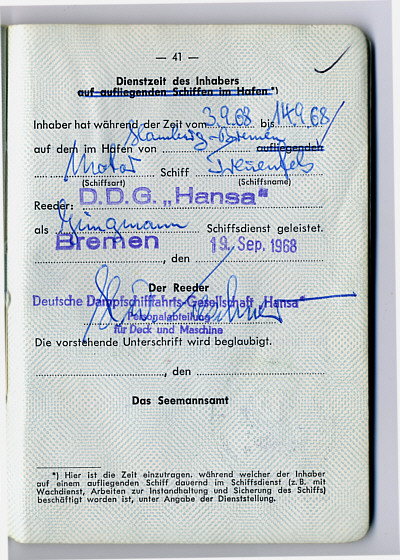 — 41 —
Dienstzeit des Inhabers
auf aufliegenden Schiffen im Hafen*)
Inhaber hat während der Zeit vom 3.9.68 bis 14.9.68
Hamburg-Bremen
auf dem im Hafen von aufliegenden
Motor Schiff Treuenfels
(Schiffsart) (Schiffsname)
Reeder: D.D.G. „Hansa"
als Jungmann Schiffsdienst geleistet.
Bremen, den 19. Sep. 1968
Der Reeder
Deutsche Dampfschifffahrts-Gesellschaft „Hansa"
Personalabteilung
für Deck und Maschine
Die vorstehende Unterschrift wird beglaubigt.
, den
Das Seemannsamt
*) Hier ist die Zeit einzutragen, während welcher der Inhaber
auf einem aufliegenden Schiff dauernd im Schiffsdienst (z.B. mit
Wachdienst, Arbeiten zur Instandhaltung und Sicherung des Schiffs)
beschäftigt worden ist, unter Angabe der Dienststellung.